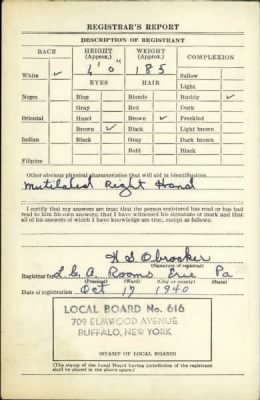 REGISTRAR'S REPORT
DESCRIPTION OF REGISTRANT
RACE HEIGHT (Approx.) WEIGHT (Approx.) COMPLEXION
White ✓ 6' 0" 185 Sallow
EYES HAIR Light
Negro Blue Blonde Ruddy ✓
Gray Red Dark
Oriental Hazel Brown ✓ Freckled
Brown ✓ Black Light brown
Indian Black Gray Dark brown
Bald Black
Filipino
Other obvious physical characteristics that will aid in identification
Mutilated Right Hand
I certify that my answers are true; that the person registered has read or has had
read to him his own answers; that I have witnessed his signature or mark and that
all of his answers of which I have knowledge are true, except as follows:
H. S.
(Signature of registrar)
Registrar for Rooms Erie Pa
(Precinct) (Ward) (City or county) (State)
Date of registration Oct 17 1940
LOCAL BOARD No. 616
709 ELMWOOD AVENUE
BUFFALO, NEW YORK
(STAMP OF LOCAL BOARD)
(The stamp of the Local Board having jurisdiction of the registrant
shall be placed in the above space.)